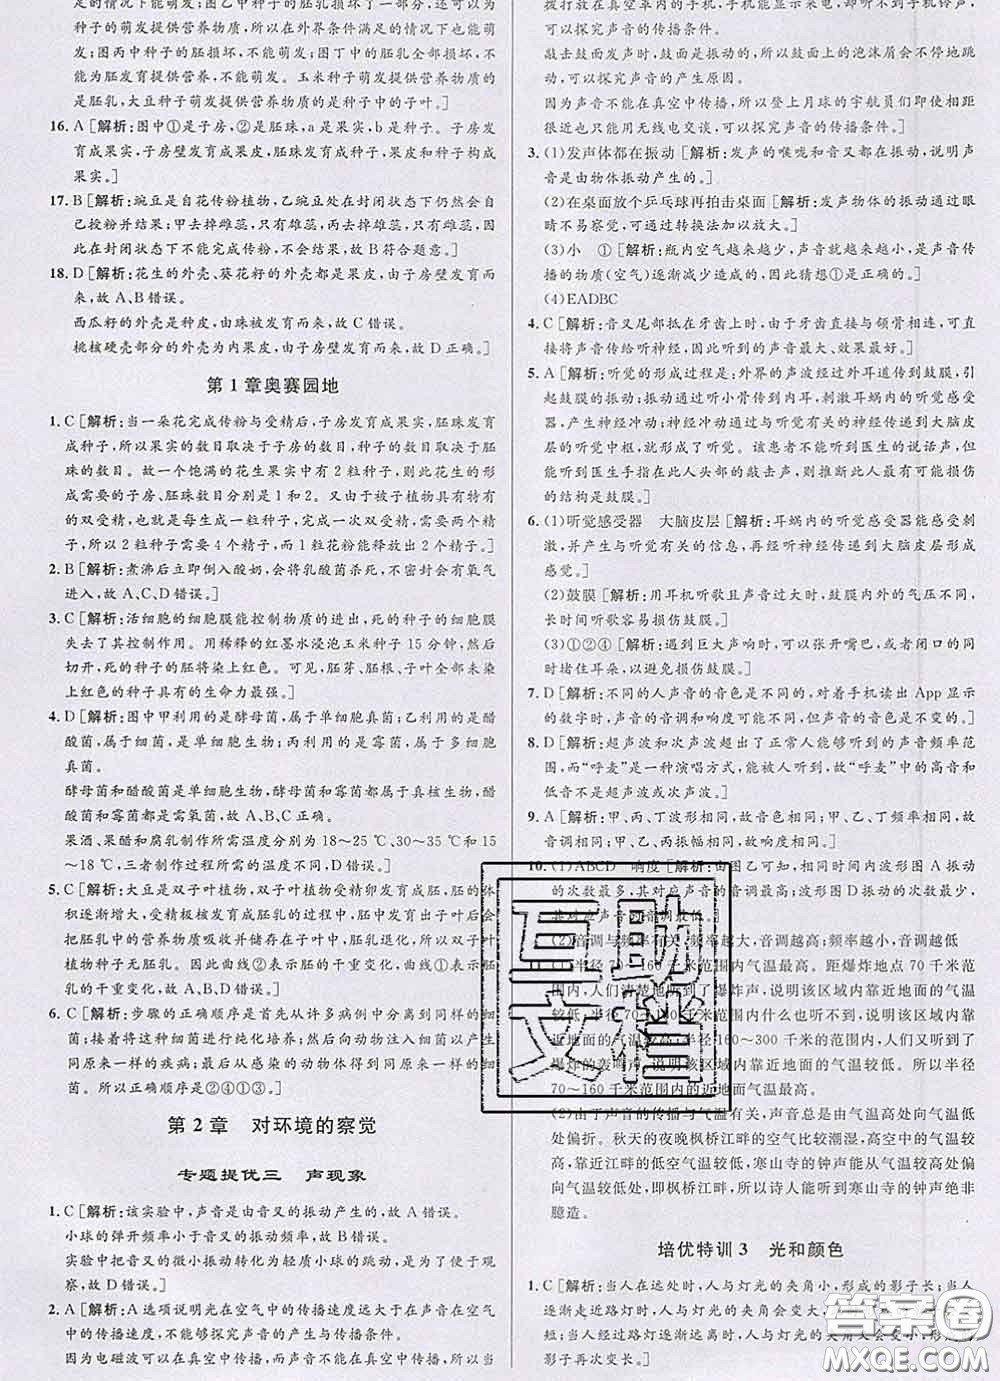 足的情况下能萌发。图乙中种子的胚乳受损了一部分,还可以
为萌发提供营养物质,所以在外界条件满足的情况下能萌发;
图丙中种子的胚损坏,不能萌发。图丁中的胚乳全部受损,不
能为胚发育提供营养,不能萌发。玉米种子萌发提供营养物质的
是胚乳,大豆种子萌发提供营养物质的是种子中的子叶。]
16. A [解析:图中①是子房,②是胚珠,a是果实,b是种子。子房发
育成果实,子房壁发育成果皮,胚珠发育成种子,果皮和种子构成
果实。]
17. B [解析:豌豆是自花传粉植物,乙豌豆处在封闭状态下仍然会自
己授粉到果实;甲去掉雌蕊,只有雄蕊;丙去掉雄蕊,只有雌蕊,因
此处在封闭状态下不能完成传粉,不能结出果实,故B符合题意。]
18. D [解析:花生的外壳、葵花籽的外壳都是果皮,由子房壁发育而
来,故A、B错误。
西瓜籽的外壳是种皮,由珠被发育而来,故C错误。
桃核硬壳部分的外壳为内果皮,由子房壁发育而来,故D正确。]
第1章奥赛园地
1. C [解析:当一朵花完成传粉与受精后,子房发育成果实,胚珠发育
成种子,所以果实的数目取决于子房的数目,种子的数目取决于胚
珠的数目。故一个饱满的花生果实中有2粒种子,则此花生的形
成需要的子房、胚珠数目分别是1和2。又由于被子植物具有特有
的双受精,也就是每生成一粒种子,完成一次双受精,共需要两个精
子,所以2粒种子需要4个精子,而1个花粉能释放出2个精子。]
2. B [解析:煮沸后立即倒入酸奶,会将乳酸菌杀死,不密封会有氧气
进入,故A、C、D错误。]
3. C [解析:活细胞的细胞膜能控制物质的进出,死的种子的细胞膜
失去了其控制作用。用稀释的红墨水浸泡玉米种子15分钟,然后
切开,死的种子的胚将染上红色。可见,胚芽、胚根、子叶全部未染
上红色的种子具有的生命力最强。]
4. D [解析:图中甲利用的是酵母菌,属于单细胞真菌;乙利用的是醋
酸菌,属于细菌,是单细胞生物;丙利用的是霉菌,属于多细胞
真菌。
酵母菌和醋酸菌是单细胞生物,酵母菌和霉菌都属于真核生物,B
醋酸菌和霉菌都是需氧型,故A、B、C错误。
果酒、果醋和腐乳制作所需温度分别为18~25℃、30~35℃和15
~18℃,三者制作过程所需的温度不同,D错误。]
5. C [解析:大豆是双子叶植物,双子叶植物受精卵发育成胚,胚的体
积逐渐增大,受精极核发育成胚乳的过程中,胚中发育出子叶后会
把胚乳中的营养物质吸收并储存在子叶中,胚乳退化,所以双子叶
植物种子无胚乳。因此曲线②表示胚的干重变化,曲线①表示胚
乳的干重变化,故C正确。]
6. C [解析:步骤的正确顺序是首先从许多病例中分离到同样的细
菌;接着将这种细菌进行纯化培养;然后向动物注入细菌以产生与
同原来一样的疾病;最后从感染的动物体得到同原来一样的细
菌。所以正确顺序是②④①③。]
第2章　对环境的察觉
专题提优三　声现象
1. C [解析:该实验中,声音是由音叉的振动产生的,故A错误。
小球的弹开频率小于音叉的振动频率,故B错误。
实验中把音叉的微小振动转化为轻质小球的摆动,是为了便于观
察,故D错误。]
2. A [解析:A选项说明光在空气中的传播速度远大于在声音在空气
中的传播速度,不能够探究声音的产生与传播条件,符合题意。
因为电磁波可以在真空中传播,而声音不能在真空中传播,所以当
拨打放在真空罩内的手机,手机能显示来电,却听不到手机铃声,
可以探究声音的传播条件。
敲击鼓面发声时,鼓面是振动的,所以鼓面上的泡沫屑会不停地跳
动,可以探究声音的产生原因。
因为声音不能在真空中传播,所以登上月球的宇航员们即使相距
很近也只能用无线电交谈,可以探究声音的传播条件。]
3. (1)发声体都在振动 [解析:发声的喉咙和音叉都在振动,说明声
音是由物体振动产生的。]
(2)在桌面放个乒乓球再拍击桌面 [解析:发声物体的振动通过眼
睛不易察觉,可通过转换法加以放大。]
(3)小　① [解析:瓶内空气越来越少,声音就越来越小,是声音传
播的物质(空气)逐渐减少造成的,因此猜想①是正确的。]
(4)EADBC
4. C [解析:音叉尾部抵在牙齿上时,由于牙齿直接与颌骨相连,可直
接将声音传给听神经,因此听到的声音最大、效果最好。]
5. A [解析:听觉的形成过程是:外界的声波经过外耳道传到鼓膜,引
起鼓膜的振动;振动通过听小骨传到内耳,刺激耳蜗内的听觉感受
器,产生神经冲动;神经冲动通过与听觉有关的神经传递到大脑皮
层的听觉中枢,就形成了听觉。该患者不能听到医生的说话声,但
能听到医生手指在此人头部的敲击声,则推断此人最有可能损伤
的结构是鼓膜。]
6. (1)听觉感受器　大脑皮层 [解析:耳蜗内的听觉感受器能感受刺
激,并产生与听觉有关的信息,再经听神经传递到大脑皮层形成
听觉。]
(2)鼓膜 [解析:用耳机听歌且声音过大时,鼓膜内外的气压不同,
长时间听歌容易损伤鼓膜。]
(3)①②④ [解析:遇到巨大声响时,可以张开嘴巴,或者闭口的同
时堵住耳朵,以避免损伤鼓膜。]
7. D [解析:不同的人声音的音色是不同的,对着手机读出App显示
的数字时,声音的音调和响度可能不同,但声音的音色是不变的。]
8. D [解析:超声波和次声波超出了正常人能够听到的声音频率范
围,而“呼麦”是一种演唱方式,能被人听到,故“呼麦”中的高音和
低音不是超声波或次声波。]
9. A [解析:甲、丙、丁波形相同,故音色相同;甲、乙、丁频率相同,故
音调相同;甲、乙、丙振幅相同,故响度相同。]
10. (1)ABCD　响度 [解析:由图乙可知,相同时间内波形图A振动
的次数最多,其对应声音的音调最高;波形图D振动的次数最少,
其对应声音的音调最低。]
(2)音调与频率有关,频率越大,音调越高;频率越小,音调越低
半径70~160千米范围内气温最高。距爆炸地点70千米
范围内,人们清楚地听到了爆炸声,说明该区域内靠近地面的气温
较低,半径70~160千米范围内什么也听不到,说明该区域内靠
近地面的气温较高;半径160~300千米的范围内,人们又听到了
爆炸的轰响声,说明该区域内靠近地面的气温较低。所以半径
70~160千米范围内的近地面气温最高。
(2)由于声音的传播与气温有关,声音总是由气温高处向气温低
处偏折。秋天的夜晚枫桥江畔的空气比较潮湿,高空中的气温较
高,靠近江畔的低空气温较低;寒山寺的钟声能从气温较高处偏向
气温较低处,即枫桥江畔,所以诗人能听到寒山寺的钟声绝非
臆造。
培优特训3　光和颜色
1. C [解析:当人在远处时,人与灯光的夹角小,形成的影子长;当人
逐渐走近路灯时,人与灯光的夹角会变大,
短;当人经过路灯逐渐远离时,人与灯光的夹角又会变小,
影子再次变长。]
互助
文档
答案圈
MXQE.COM